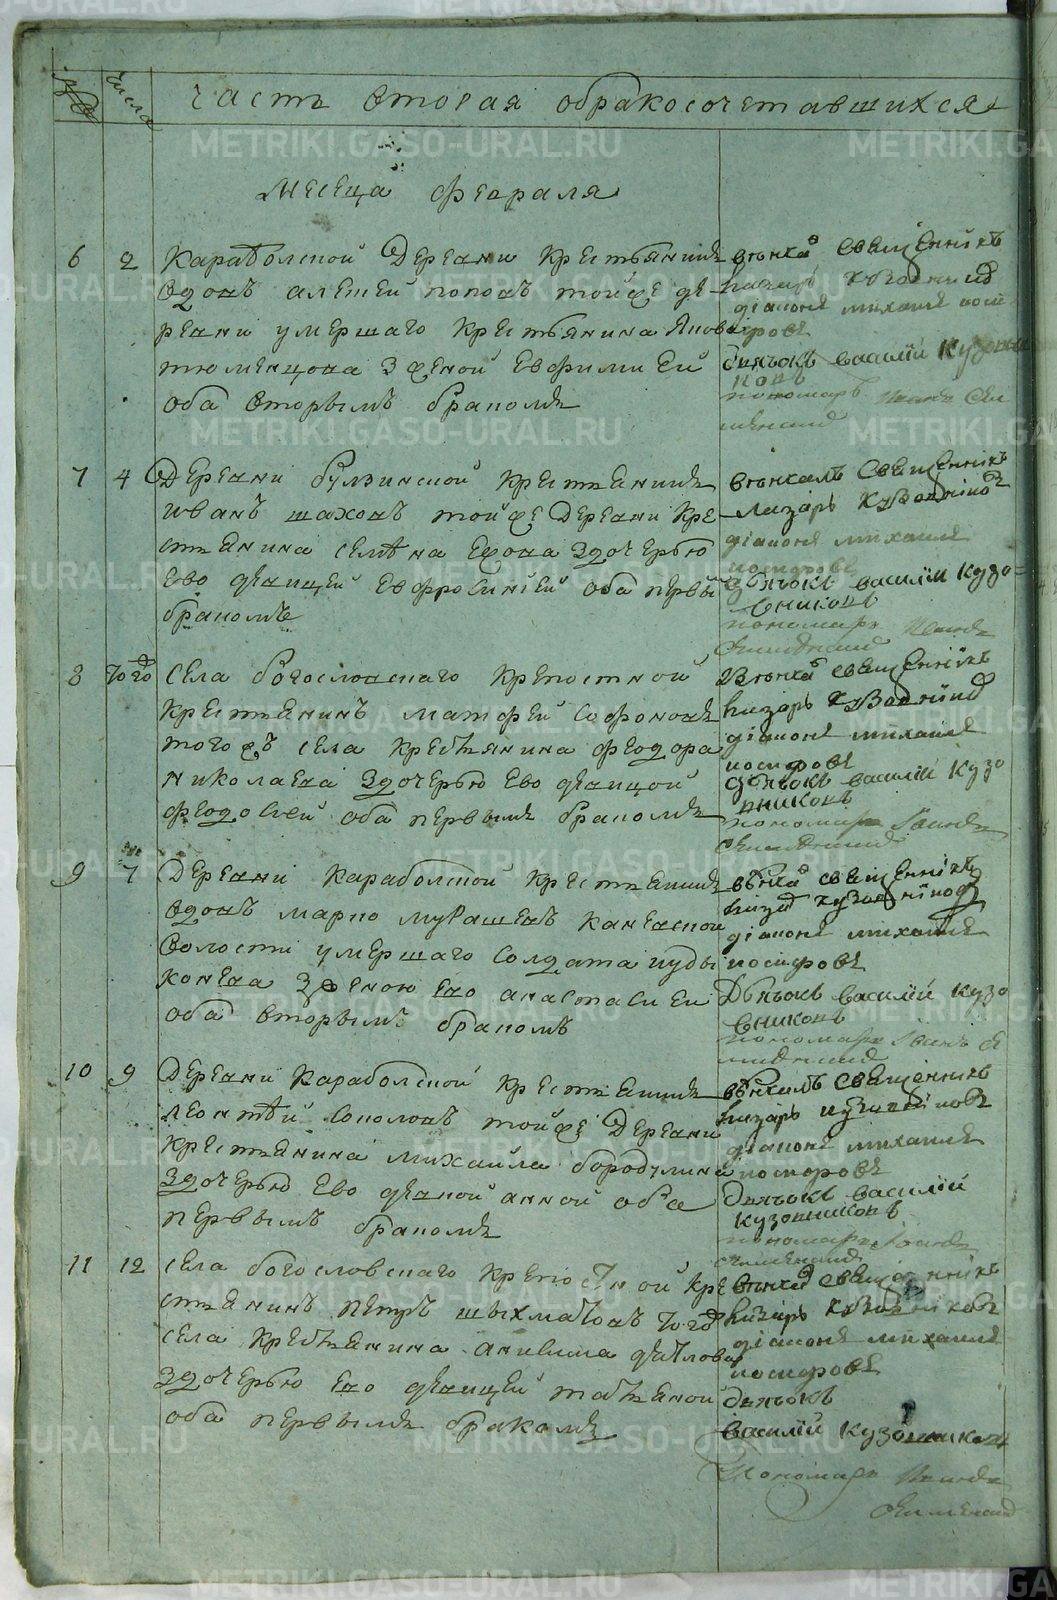 Числа
часть вторая обракосочетавшихся
месеца февраля
6 2 Караболской Деревни Крестьянинъ
вдовъ алеѯей поповъ тойже де-
ревни умершаго Крестьянина Якова
тюменцова зженой Евфимией
оба вторымъ бракомъ
венчалъ священникъ
лазарь кузовников
діаконъ михаилъ
дьячокъ василій
пономарь
7 4 Деревни булзинской крестьянинъ
иванъ шаховъ тойже Деревни кре
стьянина здочерью
ево девицей евфросинией оба первы
бракомъ
венчалъ священникъ
лазарь кузовников
діаконъ михаилъ
дьячокъ василій кузо
вниковъ
пономарь
8 того села богословскаго крепостной
крестьянинъ матфей софоновъ
тогожъ села крестьянина феодора
николаева здочерью ево девицой
феодосией оба первымъ бракомъ
венчалъ священникъ
лазарь кузовников
діаконъ михаилъ
дьячокъ василій кузо
вниковъ
пономарь
9 7 Деревни караболской крестьянинъ
вдовъ марко мурашевъ каневской
волости умершаго солдата иуды
конева зженою ево анастасией
оба вторымъ бракомъ
венчалъ священникъ
лазарь кузовников
діаконъ михаилъ
дьячокъ василій кузо
вниковъ
пономарь
10 9 Деревни караболской крестьянинъ
леонтей соколовъ тойже Деревни
крестьянина михаила бородулина
здочерью ево девкой анной оба
первымъ бракомъ
венчалъ священникъ
лазарь кузовников
діаконъ михаилъ
дьячокъ василій
кузовниковъ
пономарь
11 12 села богословскаго крепостной кре
стьянинъ петръ шыхматовъ того
села крестьянина анисима дятлова
здочерью ево девицей татьяной
оба первымъ бракомъ
венчалъ священникъ
лазарь кузовников
діаконъ михаилъ
дьячокъ
василій кузовников
пономарь
METRIKI.GASO-URAL.RU